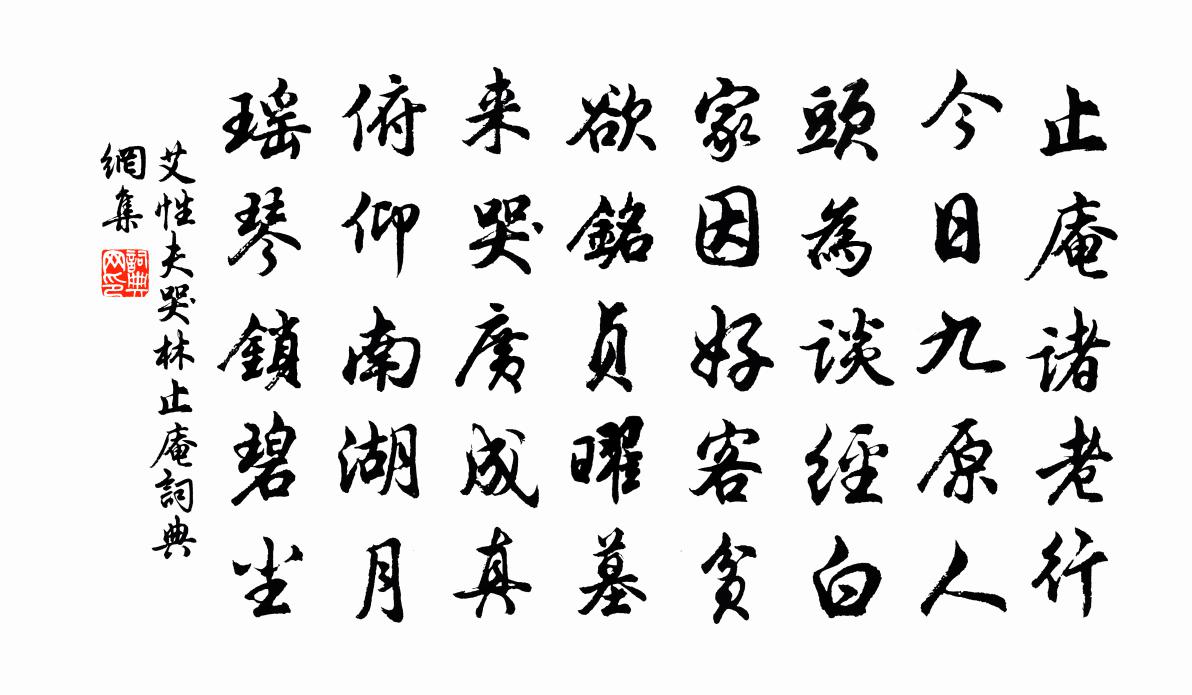 止庵诸老行
今日九原人
頭為談經白
家因好客貧
欲銘貞曜墓
来哭廣成真
俯仰南湖月
瑶琴鎖碧尘
艾性夫哭林止庵詞典
網集
詞典
网印